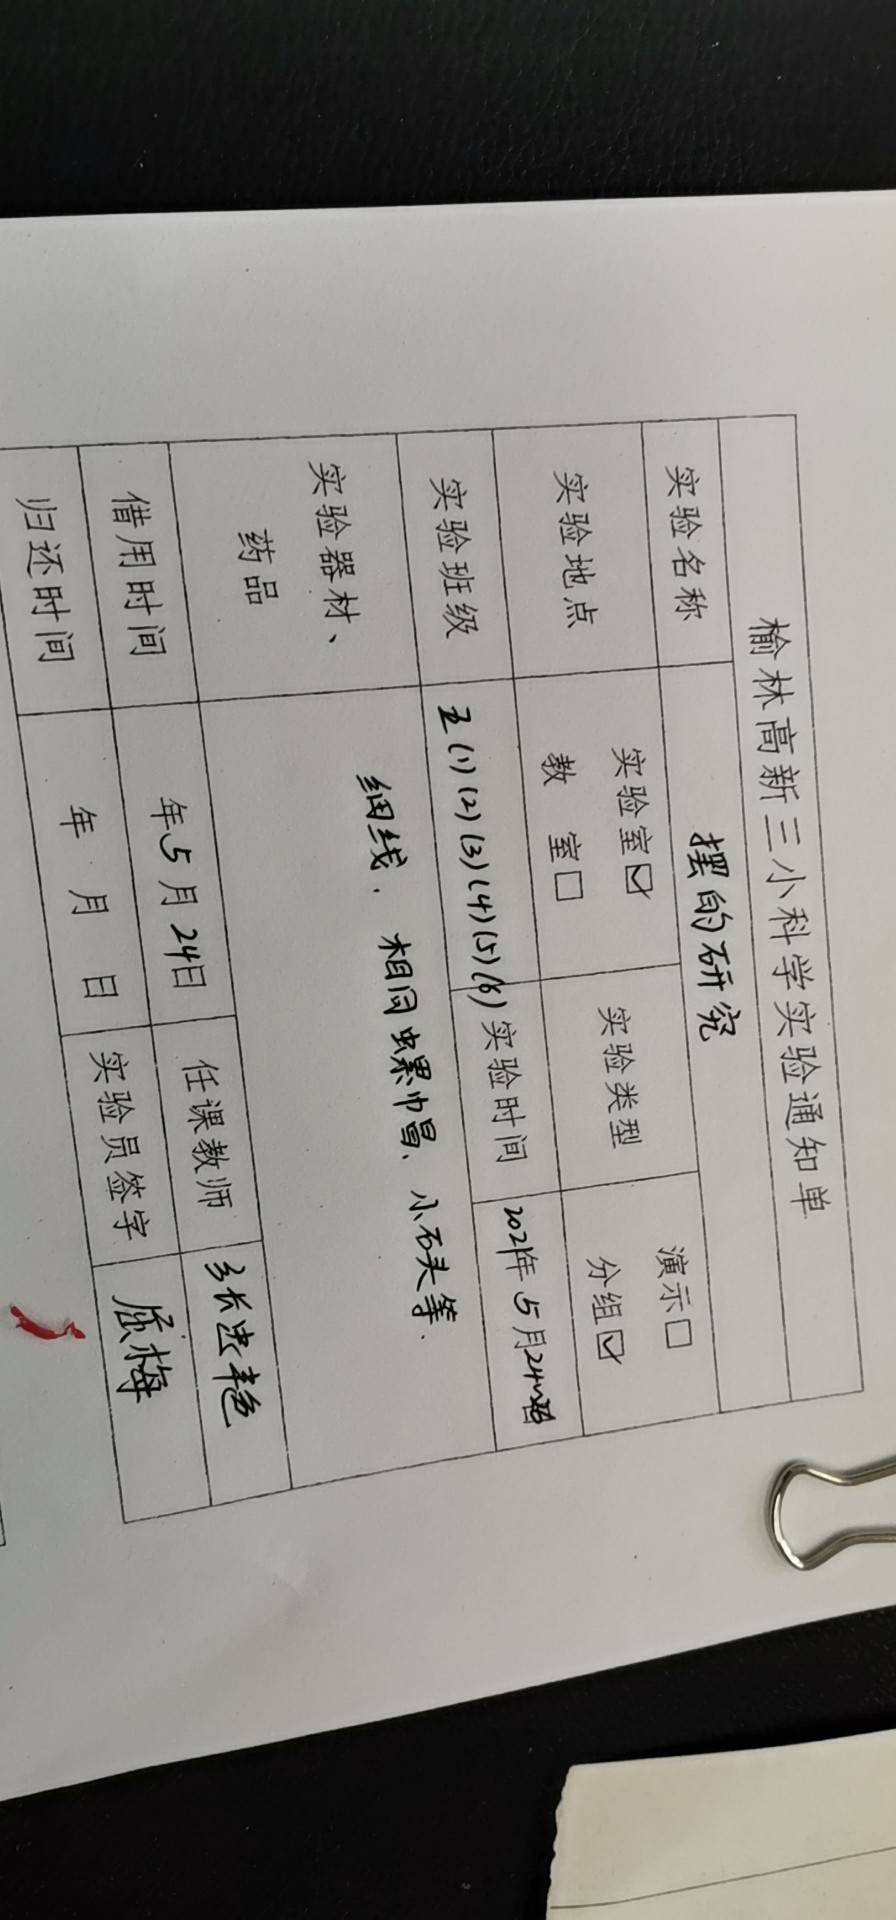 榆林高新三小科学实验通知单
实验名称 摆的研究
实验地点 实验室☑ 教 室□ 实验类型 演示□ 分组☑
实验班级 五(1)(2)(3)(4)(5)(6) 实验时间 2021年5月24日
实验器材、药品 细线、相同螺巾冒、小石头等.
借用时间 年5月24日 任课教师 张忠艳
归还时间 年 月 日 实验员签字 屈梅